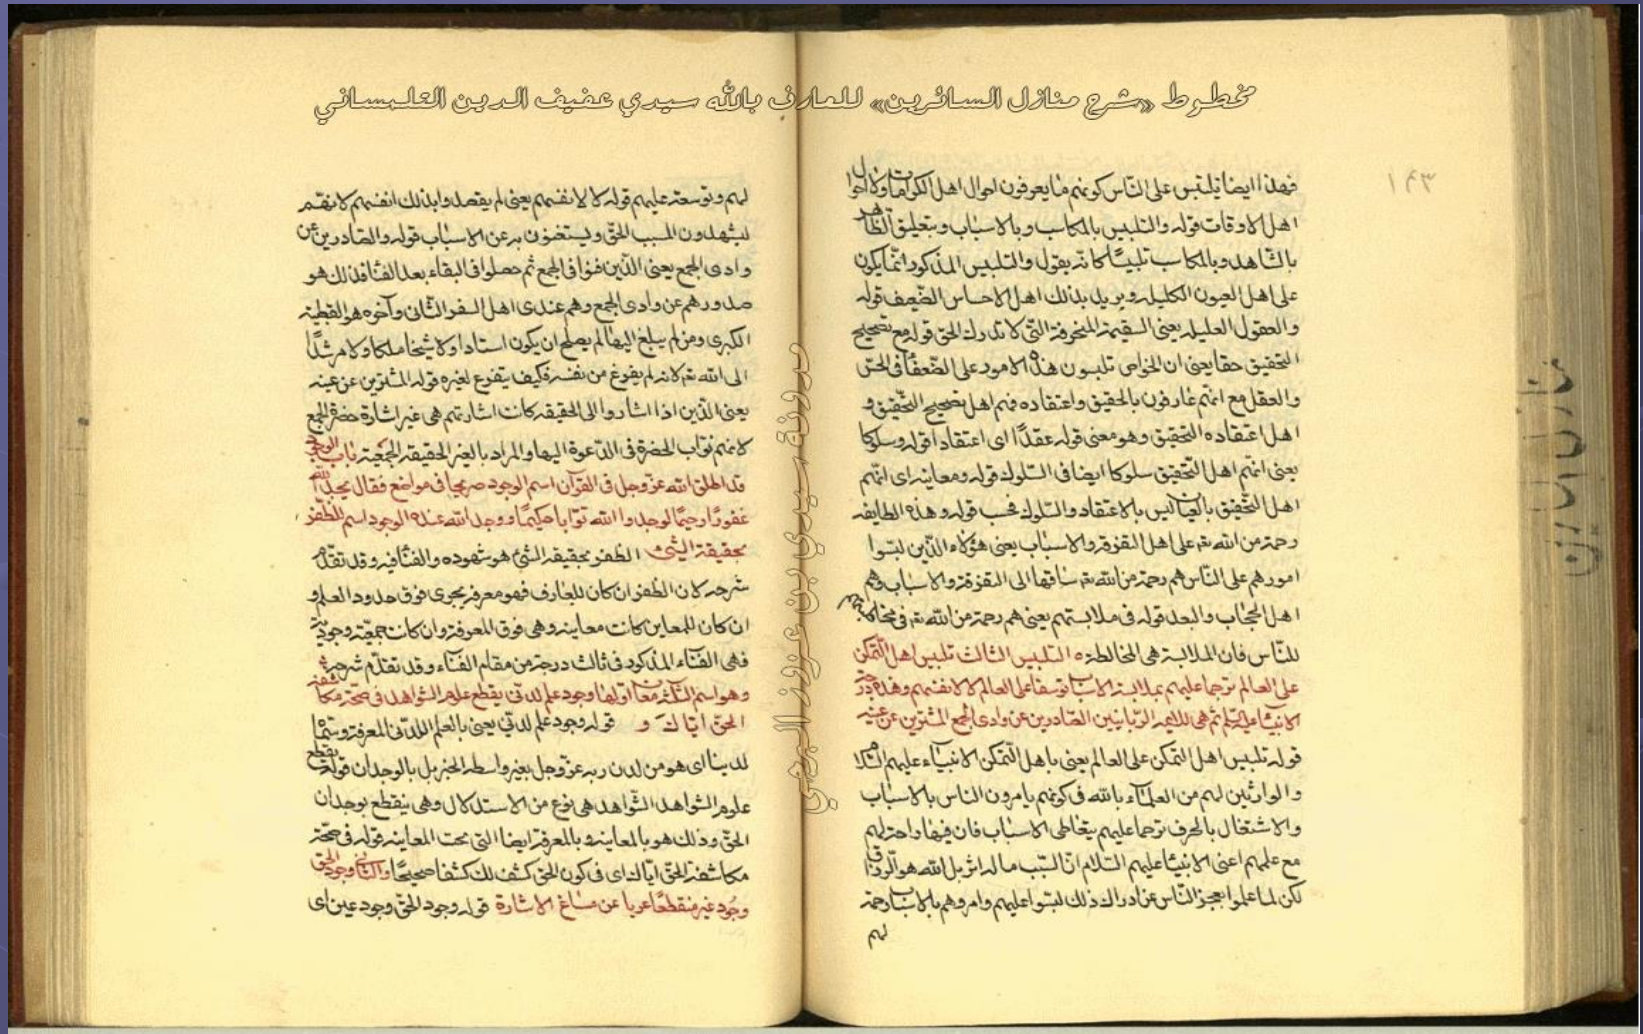 مخطوط «شرح منازل السائرين» للعارف بالله سيدي عفيف الدين التلمساني
١٤٣
فهذا ايضا يلتبس على النّاس كونهم ما يعرفون احوال اهل الكرامات ولا احوال
اهل الاوقات قوله والتلبيس بالمكاسب وبالاسباب وبتعليق الظاهر
بالشاهد وبالمكاسب تلبيسًا كانه يقول والتلبيس المذكور انّما يكون
على اهل العيون الكليله ويريد بذلك اهل الاحساس الضّعيف قوله
والعقول العليله يعنى السقيمة المنحرفة التّى لا تدرك الحق قوله مع تصحيح
التحقيق حقا يعنى ان الخواص تلبسون هذه الامور على الضّعفاء فى الحسّ
والعقل مع انّهم عارفون بالحقيق واعتقاده فهم اهل تصحيح التّحقيق و
اهل اعتقاده التحقيق وهو معنى قوله عقدًا اى اعتقادا قوله وسلوكا
يعنى انّهم اهل التّحقيق سلوكا ايضا فى السّلوك قوله ومعاينه اى انّهم
اهل التّحقيق بالعيان ليس بالاعتقاد والسّلوك فحسب قوله وهذه الطايفه
رحمة من الله تع على اهل التفرقة والاسباب يعنى هؤلاء الذّين لبسّوا
امورهم على النّاس هم رحمة من الله تع ساقها الى التفرقة والاسباب وهم
اهل الحجاب والبعد قوله فى ملابستهم يعنى هم رحمة من الله تع فى مخالطتهم
للنّاس فان الملابسة هى المخالطة ه التلبيس الثالث تلبيس اهل التّمكن
على العالم ترحما عليهم بملابسة الاسباب توسعا على العالم لا لانفسهم وهذه درجة
الانبياء عليهم السّلم ثم هى للائمه الربّانيين الصّادرين عن وادى الجمع المشيرين عن عينه
قوله تلبيس اهل التمكن على العالم يعنى باهل التّمكن الانبياء عليهم السّلام
والوارثين لهم من العلمآء بالله فى كونهم يامرون الناس بالاسباب
والاشتغال بالحرف ترحما عليهم بتعاطى الاسباب فان فيها راحة لهم
مع علمهم اعنى الانبيآء عليهم السّلام انّ السّبب ما له اثر بل الله هو الرزاق
لكن لما علموا عجز النّاس عن ادراك ذلك لبسّوا عليهم وامروهم بالاسباب رحمة
لهم
لهم وتوسعة عليهم قوله لا لانفسهم يعنى لم يقصدوا بذلك انفسهم لانفسهم
ليشهدون المسبب الحقّ ويستغنون به عن الاسباب قوله والصّادرين عن
وادى الجمع يعنى الذّين فنوا فى الجمع ثم حصلوا فى البقاء بعد الفناء فذلك هو
صدورهم عن وادى الجمع وهم عندى اهل السفر الثّانى وآخره هو القطبيّة
الكبرى ومن لم يبلغ اليها لم يصلح ان يكون استادا ولا شيخا مسلكا ولا مرشدًا
الى الله تع لانه لم يفرغ من نفسه فكيف يتفرغ لغيره قوله المشيرين عن عينه
يعنى الذّين اذا اشاروا الى الحقيقه كانت اشارتهم هى غير اشارة حضرة الجمع
لانهم نوّاب الحضرة فى الدّعوة اليها والمراد بالعين الحقيقه الجمعيّة باب الوجود
قد اطلق الله عزّ وجل فى القرآن اسم الوجود صريحا فى مواضع فقال يجد الله
غفورًا رحيمًا لوجدوا الله توّابا حكيمًا ووجد الله عنده الوجود اسم للظّفر
بحقيقة الشّئ الظفر بحقيقه الشّئ هو شهوده والفنآء فيه وقد تقدّم
شرحه لان الظفر ان كان للعارف فهو معرفة يجرى فوق حدود العلم و
ان كان للمعاين كانت معاينه وهى فوق المعرفة وان كانت جمعيّة وجوديّة
فهى الفنآء المذكور فى ثالث درجة من مقام الفنآء وقد تقدّم شرحه
وهو اسم لثلثة معان اوّلها وجود علم لدنى يقطع علوم الشواهد فى صحّة مكاشفة
الحقّ ايّاك و قوله وجود علم لدنّى يعنى بالعلم اللّدنى المعرفة وسمّاها
لدنيا اى هو من لدن ربه عزّ وجل بغير واسطه الخبر بل بالوجدان قوله يقطع
علوم الشواهد الشّواهد هى نوع من الاستدلال وهى ينقطع بوجدان
الحقّ وذلك هو بالمعاينه وبالمعرفة ايضا التى تحت المعاينه قوله فى صحّة
مكاشفة الحقّ ايّاك اى فى كون الحقّ كشف لك كشفا صحيحًا والثّانى وجود الحق
وجُود عين منقطعًا عريا عن مساغ الاشارة قوله وجود الحقّ وجود عين اى
مدونة سيدي بن عزوز البرجي